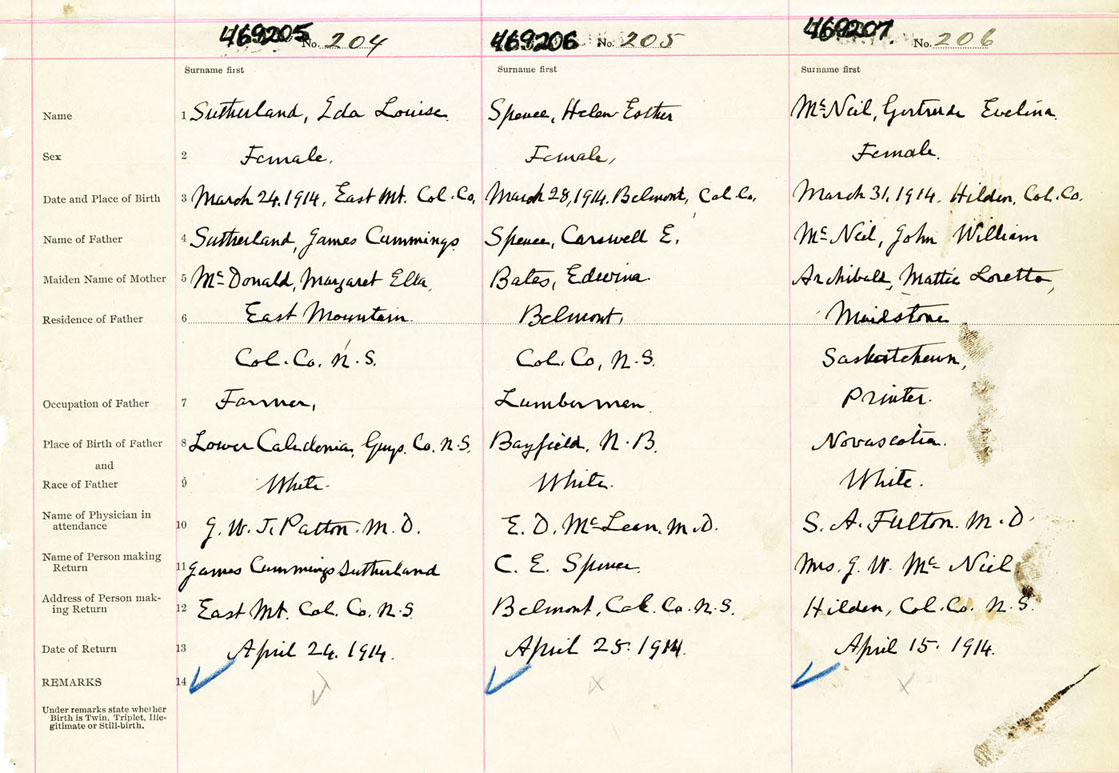 469205 No. 204 469206 No. 205 469207 No. 206
Surname first Surname first Surname first
Name 1 Sutherland, Eda Louise Spence, Helen Esther McNeil, Gertrude Evelina
Sex 2 Female. Female, Female.
Date and Place of Birth 3 March 24, 1914, East Mt. Col. Co. March 28, 1914, Belmont, Col. Co, March 31, 1914. Hilden, Col. Co.
Name of Father 4 Sutherland, James Cummings Spence, Carswell E. McNeil, John William
Maiden Name of Mother 5 McDonald, Margaret Ella, Bates, Edwina Archibald, Mattie Loretta,
Residence of Father 6 East Mountain. Belmont, Maidstone
Col. Co. N.S. Col. Co, N.S. Saskatchewn,
Occupation of Father 7 Farmer, Lumberman Printer.
Place of Birth of Father 8 Lower Caledonia, Guys. Co. N.S. Bayfield, N.B. Novascotia.
and
Race of Father 9 White. White. White.
Name of Physician in
attendance 10 G. W. T. Patton. M.D. E. D. McLean. M.D. S. A. Fulton. M.D.
Name of Person making
Return 11 James Cummings Sutherland C. E. Spence. Mrs. J. W. McNiel
Address of Person mak-
ing Return 12 East Mt. Col. Co. N.S Belmont, Col. Co. N.S. Hilden, Col. Co. N.S.
Date of Return 13 April 24. 1914. April 25. 1914. April 15. 1914.
REMARKS 14
Under remarks state whether
Birth is Twin, Triplet, Ille-
gitimate or Still-birth.